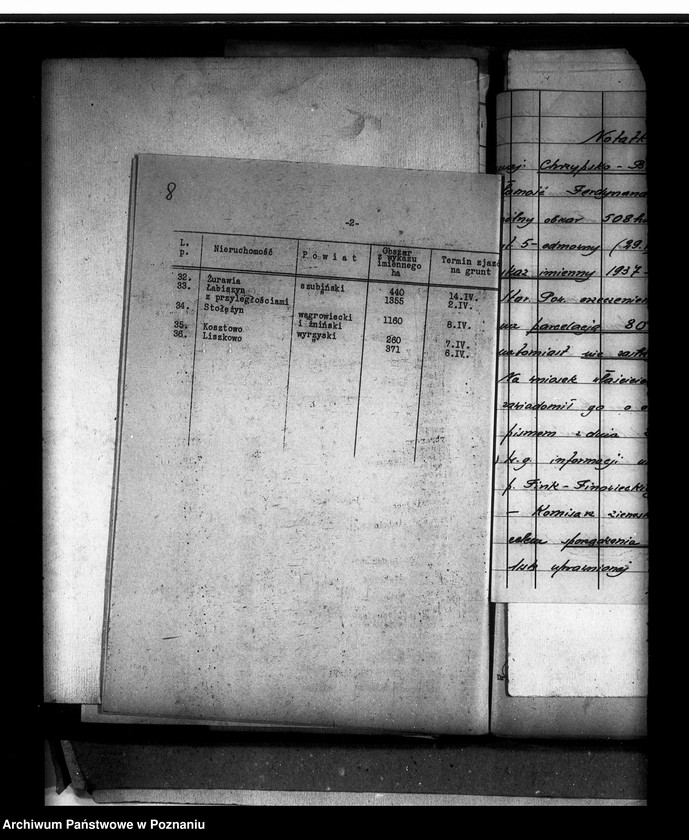 8
-2-
L. p. Nieruchomość Powiat Obszar z wykazu imiennego ha Termin zjazd na grunt
32. Żurawia szubiński 440 14.IV.
33. Łabiszyn 1355 2.IV.
z przyległościami
34. Stołężyn wągrowiecki i żniński 1160 8.IV.
35. Kosztowo wyrzyski 260 7.IV.
36. Liszkowo 371 6.IV.
Notatk
Chrzypsko - B
Ferdynand
obszar 508 h
5-odmowny (29.
imienny 1937
Star. Pow. orzeczeniem
parcelację 80
natomiast nie
Na wniosek właściciel
zawiadomił go o
pismem z dnia
w.g. informacji
p. Fink-Finowicki
- Komisarz ziemsk
celem sporządzenia
uprawnionej
Archiwum Państwowe w Poznaniu